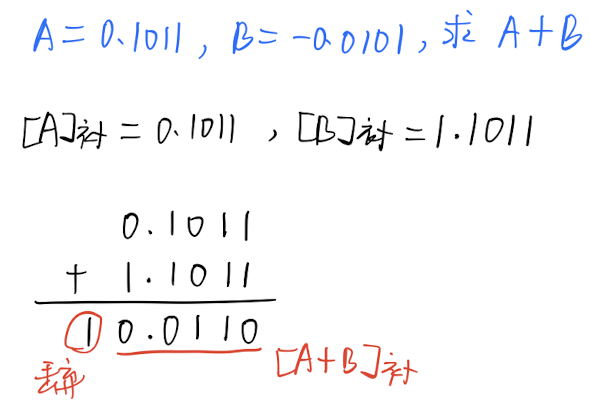 A = 0.1011 , B = -0.0101 , 求 A+B
[A]补 = 0.1011 , [B]补 = 1.1011
0.1011
+ 1.1011
1 0.0110
丢弃 [A+B]补